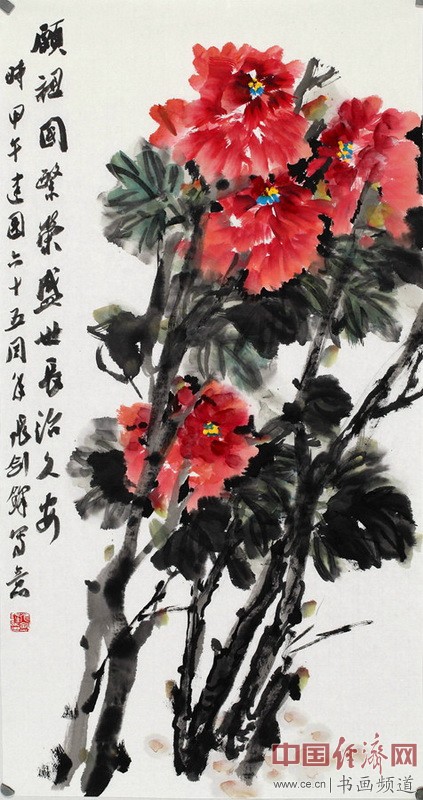 願祖国繁荣盛世長治久安
時甲午建国六十五周年張剑鋒写意
中国经济网
www.ce.cn|书画频道